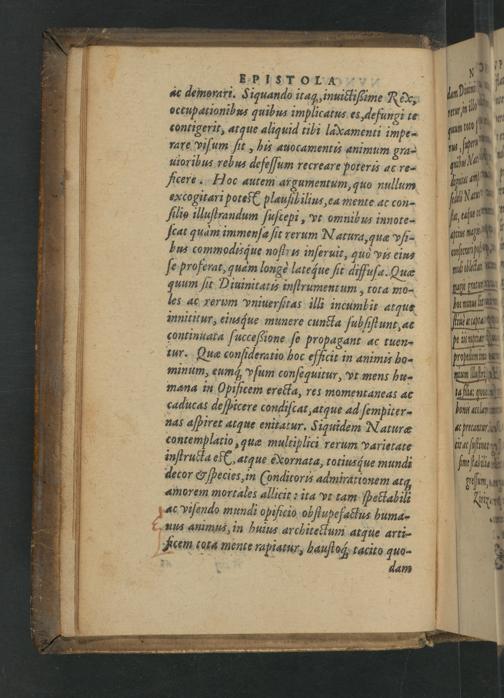 EPISTOLA
ac demorari. Siquando itaq, inuictißime Rex,
occupationibus quibus implicatus es, defungi te
contigerit, atque aliquid tibi laxamenti impe-
rare visum sit, his auocamentis animum gra-
uioribus rebus defessum recreare poteris ac re-
ficere. Hoc autem argumentum, quo nullum
excogitari potest plausibilius, ea mente ac con-
silio illustrandum suscepi, vt omnibus innote-
scat quàm immensa sit rerum Natura, quæ vsi-
bus commodisque nostris inseruit, quò vis eius
se proferat, quàm longè latéque sit diffusa. Quæ
quum sit Diuinitatis instrumentum, tota mo-
les ac rerum vniuersitas illi incumbit atque
innititur, eiusque munere cuncta subsistunt, ac
continuata successione se propagant ac tuen-
tur. Quæ consideratio hoc efficit in animis ho-
minum, eumq́; vsum consequitur, vt mens hu-
mana in Opificem erecta, res momentaneas ac
caducas despicere condiscat, atque ad sempiter-
nas aspiret atque enitatur. Siquidem Naturæ
contemplatio, quæ multiplici rerum varietate
instructa est, atque exornata, totiusque mundi
decor & species, in Conditoris admirationem atq;
amorem mortales allicit: ita vt tam spectabili
ac visendo mundi opificio obstupefactus huma-
nus animus, in huius architectum atque arti-
ficem tota mente rapiatur, haustoq́; tacito quo-
dam